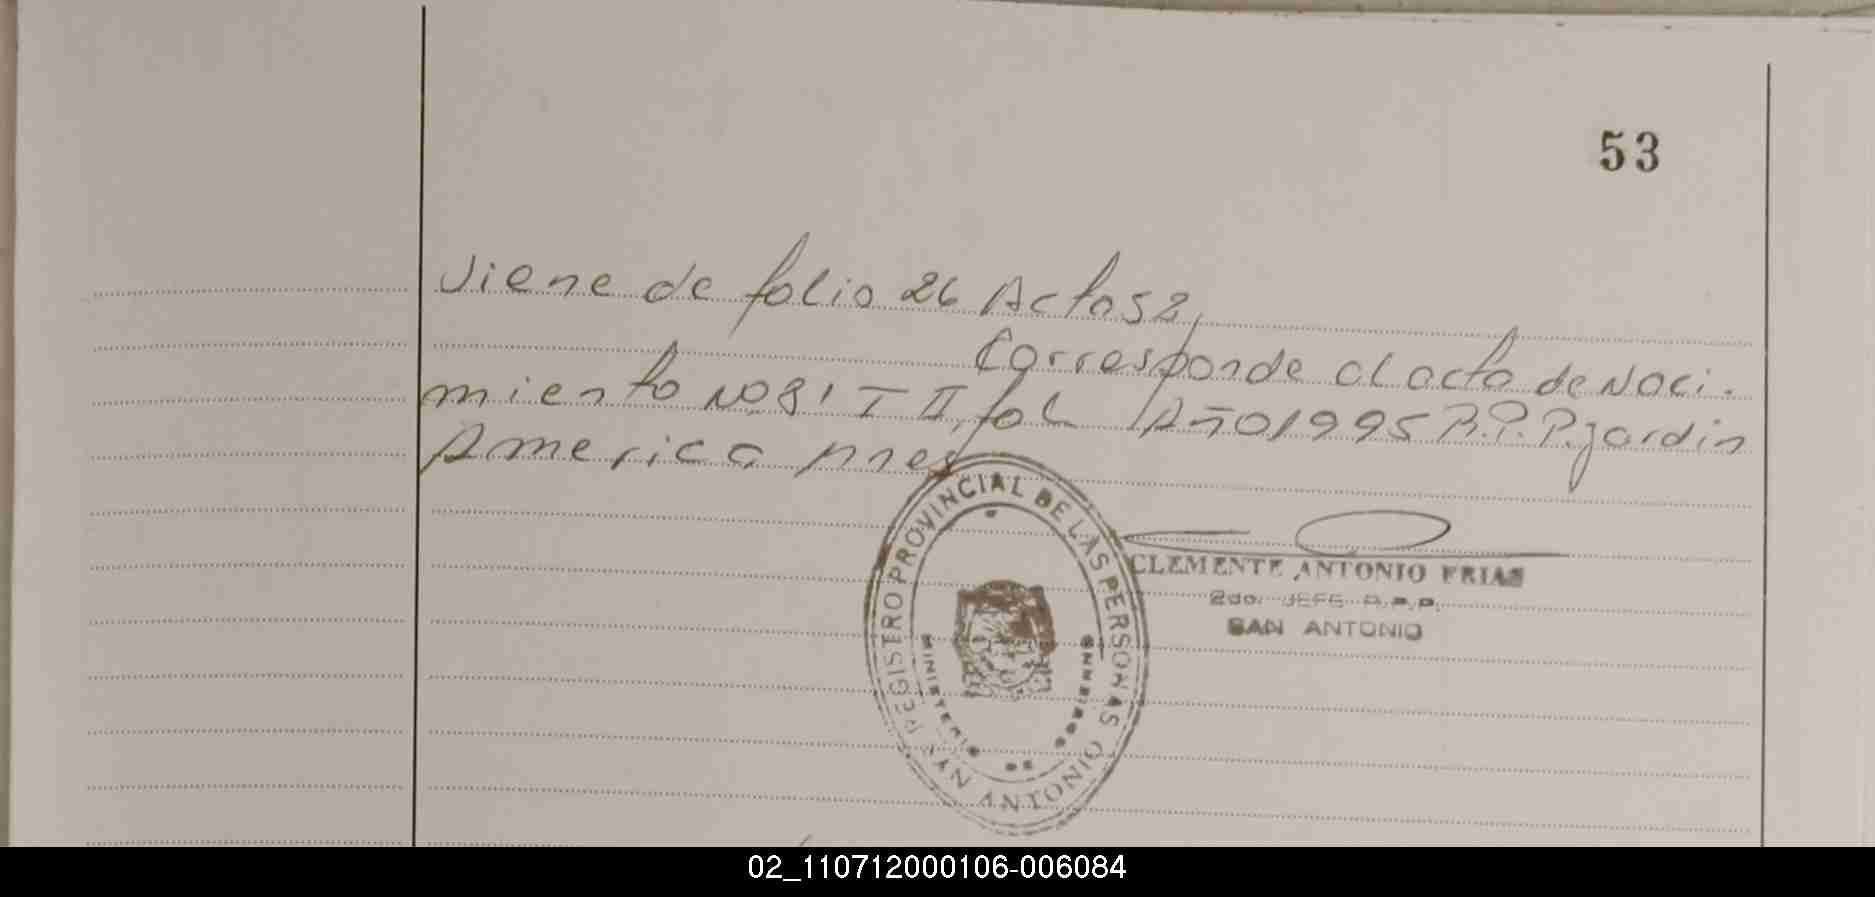 53
Viene de folio 26 Acta 52,
Corresponde al acta de Naci-
miento No 81 T II, fol Año 1995 R.P.P. Jardin
America mnes
REGISTRO PROVINCIAL DE LAS PERSONAS
MINISTERIO DE GOBIERNO
SAN ANTONIO
CLEMENTE ANTONIO FRIAS
2do. JEFE R.P.P.
SAN ANTONIO
02_110712000106-006084